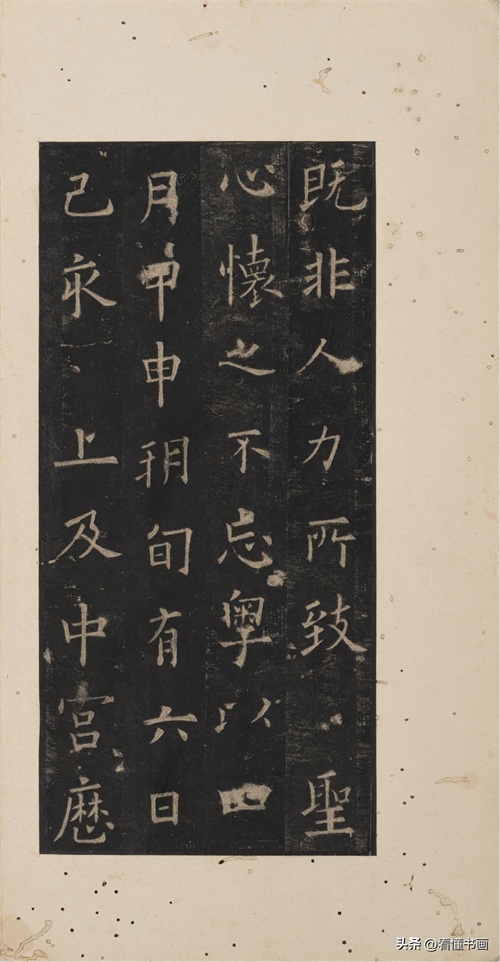 既非人力所致聖
心懷之不忘粤以四
月甲申朔旬有六日
己亥上及中宮歷
头条@看懂书画